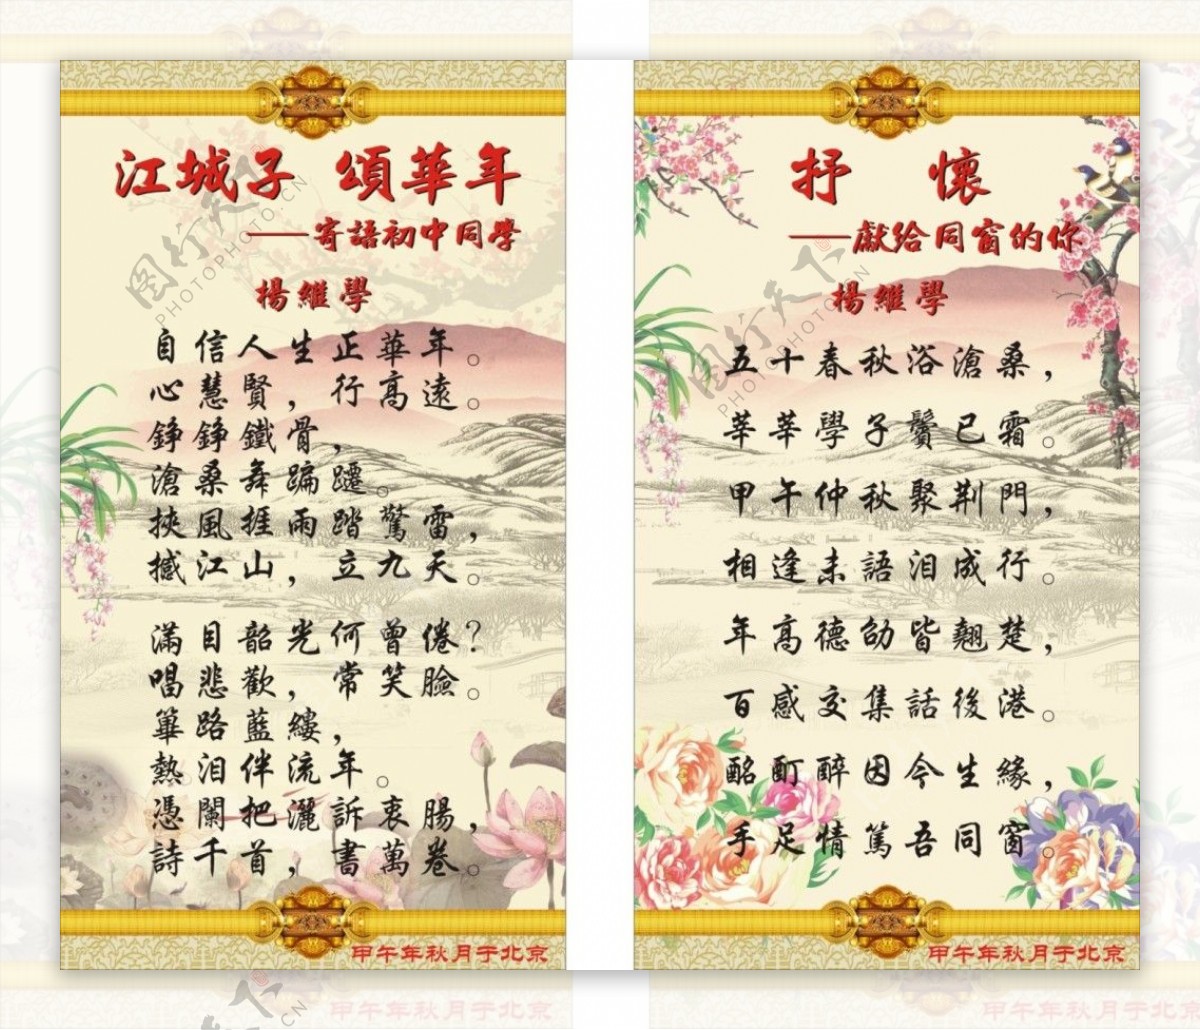 江城子 頌華年
——寄語初中同學
楊維學
自信人生正華年。
心慧賢，行高遠。
錚錚鐵骨，
滄桑舞蹁躚。
挾風捱雨踏驚雷，
撼江山，立九天。
滿目韶光何曾倦?
唱悲歡，常笑臉。
篳路藍縷，
熱泪伴流年。
憑闌把灑訴衷腸，
詩千首，書萬卷。
甲午年秋月于北京
抒 懷
——獻給同窗的你
楊維學
五十春秋浴滄桑，
莘莘學子鬢已霜。
甲午仲秋聚荆門，
相逢未語泪成行。
年高德劭皆翹楚，
百感交集話後港。
酩酊醉因今生緣，
手足情篤吾同窗。
甲午年秋月于北京